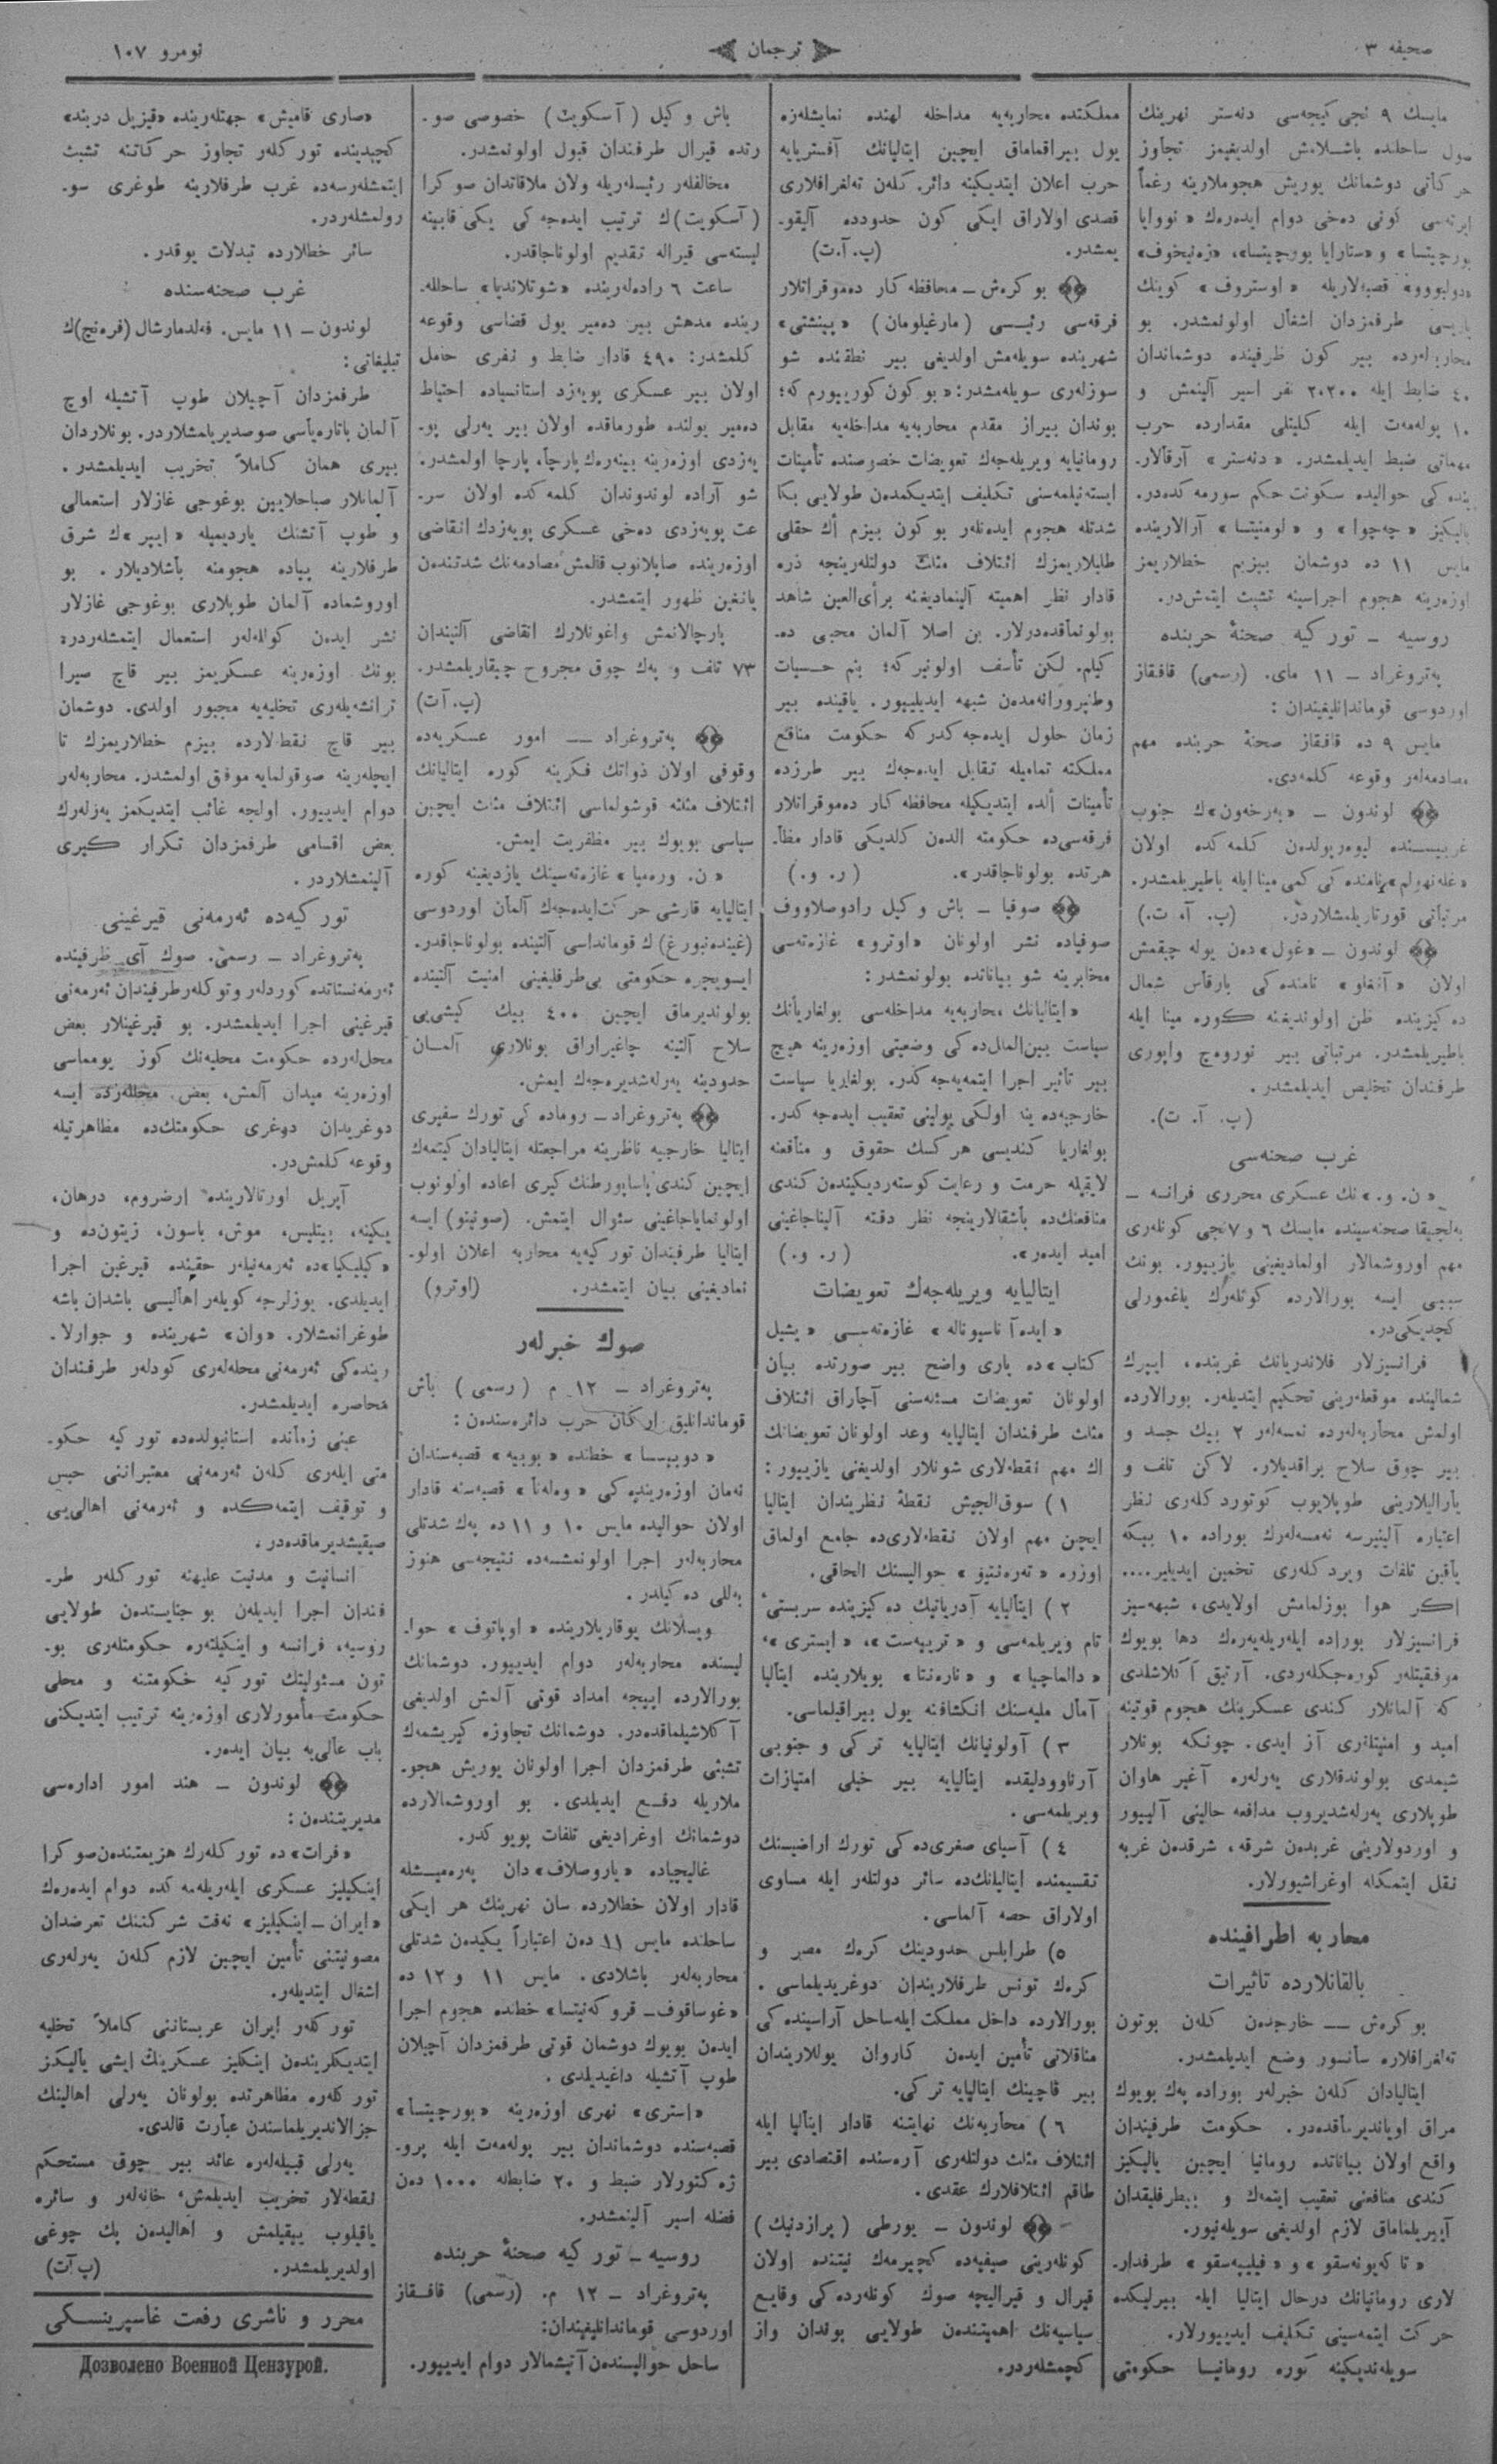 صحیفه ٣
ترجمان
نومرو ١٠٧
مایسك ٩ نجی كیجه‌سی دنه‌ستر نهرینك
صول ساحلنده باشلامش اولدیغیمز تجاوز
حركاتی دوشمانك یوریش هجوملارینه رغماً
ایرته‌سی كونی ده‌خی دوام ایده‌رك « نووایا
بورچیتسا » و «ستارایا بورچیتسا»،
قصبه‌لاریله « اوستروف » كوینك
طرفمزدان اشغال اولونمشدر. بو
محاربه‌لرده بیر كون ظرفینده دوشماندان
٤٠ ضابط ایله ٢٠٢٠٠ نفر اسیر آلینمش و
١٠ پوله‌مه‌ت ایله كلیتلی مقدارده حرب
مهماتی ضبط ایدیلمشدر. « دنه‌ستر » آرقالار-
ینده‌كی حوالیده سكونت حكم سورمه‌كده‌در.
یالیكیز « چه‌چوا » و « لومنیتسا » آرالارینده
مایس ١١ ده دوشمان بیزیم خطلاریمز
اوزه‌رینه هجوم اجراسینه تشبث ایتمش‌در.
روسیه – توركیه صحنۀ حربنده
په‌تروغراد – ١١ مای. (رسمی) قافقاز
اوردوسی قوماندانلیغیندان :
مایس ٩ ده قافقاز صحنۀ حربنده مهم
مصادمه‌لر وقوعه كلمه‌دی.
لوندون – «به‌رخه‌ون»ك جنوب
غربیسنده لیوه‌رپولدن كلمه‌كده اولان
نامنده‌كی كمی مینا ایله باطیریلمشدر.
مرتباتی قورتاریلمشلاردر. (پ. آ. ت.)
لوندون – «غول»ده‌ن یوله چیقمش
اولان « آنغلو » نامنده‌كی بارقاس شمال
ده‌كیزینده ظن اولوندیغنه كوره مینا ایله
باطیریلمشدر. مرتباتی بیر نوروه‌چ واپوری
طرفندان تخلیص ایدیلمشدر.
(پ. آ. ت).
غرب صحنه‌سی
«ن. و.»نك عسكری محرری فرانسه –
به‌لجیقا صحنه‌سینده مایسك ٦ و ٧نجی كونله‌ری
مهم اوروشمالار اولمادیغینی یازییور. بونك
سببی ایسه بورالارده كونله‌رك یاغمورلی
كچدیكی‌در.
فرانسیزلار فلاندریانك غربنده، ایپرك
شمالینده موقعله‌رینی تحكیم ایتدیله‌ر. بورالارده
اولمش محاربه‌لرده نمسه‌لر ٢ بیك جسد و
بیر چوق سلاح براقدیلار. لاكن تلف و
یارالیلارینی طوپلایوب كوتوردكله‌ری نظر
اعتباره آلینیرسه نه‌مسه‌لرك بوراده ١٠ بیكه
یاقین تلفات ویردكله‌ری تخمین ایدیلیر....
اكر هوا بوزلمامش اولایدی، شبهه‌سیز
فرانسیزلار بوراده ایله‌ریله‌یه‌رك دها بویوك
موفقیتله‌ر كوره‌جكله‌ردی. آرتیق آكلاشلدی
كه آلمانلار كندی عسكرینك هجوم قوتینه
امید و امنیتله‌ری آز ایدی. چونكه بونلار
شیمدی بولوندقلاری یه‌رله‌ره آغیر هاوان
طوپلاری یه‌رله‌شدیروب مدافعه حالینی آلییور
و اوردولارینی غربدن شرقه، شرقدن غربه
نقل ایتمكله اوغراشیورلار.
محاربه اطرافینده
بالقانلارده تاثیرات
بوكره‌ش — خارجدن كلن بوتون
ته‌لغرافلاره سانسور وضع ایدیلمشدر.
ایتالیادان كلن خبرلر بوراده پك بویوك
مراق اویاندیرماقده‌در. حكومت طرفیندان
واقع اولان بیاناتده رومانیا ایچین یالیكیز
كندی منافعنی تعقیب ایتمه‌ك و بیطرفلیقدان
آییریلماماق لازم اولدیغی سویله‌نیور.
« تاكه‌یونه‌سقو » و « فیلیپه‌سقو » طرفدار-
لاری رومانیانك درحال ایتالیا ایله بیرلیكده
حركت ایتمه‌سینی تكلیف ایدییورلار.
سویله‌ندیكینه كوره رومانیا حكومتی
مملكتده محاربه‌یه مداخله لهنده نمایشله‌ره
یول بیراقماماق ایچین ایتالیانك آفستریایه
حرب اعلان ایتدیكینه دائر. كلن ته‌لغرافلاری
قصدی اولاراق ایكی كون حدودده آلیقو-
یمشدر. (پ.آ.ت)
بوكره‌ش – محافظه‌كار ده‌موقراتلار
فرقه‌سی رئیسی (مارغیلومان) « پیتشتی»
شهرینده سویله‌مش اولدیغی بیر نطقنده شو
سوزله‌ری سویله‌مشدر: « بوكون كورییورم كه؛
بوندان بیراز مقدم محاربه‌یه مداخله‌یه مقابل
رومانیایه ویریله‌جه‌ك تعویضات خصوصنده تأمینات
ایسته‌نیلمه‌سنی تكلیف ایتدیكمده‌ن طولایی بكا
شدتله هجوم ایده‌نلر بوكون بیزم اك حقلی
طلبلاریمزك ائتلاف مثلث دولتله‌رینجه ذره
قادار نظر اهمیته آلینمادیغنه برأی‌العین شاهد
بولونماقده‌درلار. بن اصلا آلمان محبی ده-
كیلم. لكن تأسف اولونیر كه؛ بنم حسیات
وطنپرورانه‌مده‌ن شبهه ایدیلییور. یاقینده بیر
زمان حلول ایده‌جه‌كدر كه حكومت منافع
مملكته تمامیله تقابل ایده‌جه‌ك بیر طرزده
تأمینات ألده ایتدیكیله محافظه‌كار ده‌موقراتلار
فرقه‌سی‌ده حكومته الدن كلدیكی قادار مظا-
هرتده بولوناجاقدر». (ر. و.)
صوفیا – باش وكیل رادوصلاووف
صوفیاده نشر اولونان «اوترو» غازه‌ته‌سی
مخابرینه شو بیاناتده بولونمشدر:
«ایتالیانك محاربه‌یه مداخله‌سی بولغاریانك
سیاست بین‌الملل‌ده‌كی وضعیتی اوزه‌رینه هیچ
بیر تأثیر اجرا ایتمه‌یه‌جه‌كدر. بولغاریا سیاست
خارجیه‌ده ینه اولكی یولینی تعقیب ایده‌جه‌كدر.
بولغاریا كندیسی هركسك حقوق و منافعنه
لایقیله حرمت و رعایت كوسته‌ردیكینده‌ن كندی
منافعنك‌ده باشقالارینجه نظر دقته آلیناجاغینی
امید ایده‌ر». (ر. و.)
ایتالیایه ویریله‌جه‌ك تعویضات
« ایده‌آ ناسیوناله » غازه‌ته‌سی « یشیل
كتاب»ده یاری واضح بیر صورتده بیان
اولونان تعویضات مسئله‌سنی آچاراق ائتلاف
مثلث طرفندان ایتالیایه وعد اولونان تعویضاتك
اك مهم نقطه‌لاری شونلار اولدیغنی یازییور:
١) سوق‌الجیش نقطۀ نظریندان ایتالیا
ایچین مهم اولان نقطه‌لاری‌ده جامع اولماق
اوزره « ته‌ره‌نتینو » حوالیسنك الحاقی.
٢) ایتالیایه آدریاتیك ده‌كیزینده سربستی
تام ویریلمه‌سی و « تریپه‌ست»، « ایستری»،
« دالماچیا » و « ناره‌نتا » بویلارینده ایتالیا
آمال ملیه‌سنك انكشافنه یول بیراقیلماسی.
٣) آولونیانك ایتالیایه تركی و جنوبی
آرناوودلیقده ایتالیایه بیر خیلی امتیازات
ویریلمه‌سی.
٤) آسیای صغری‌ده‌كی تورك اراضیسنك
تقسیمنده ایتالیانك‌ده سائر دولتله‌ر ایله مساوی
اولاراق حصه آلماسی.
٥) طرابلس حدودینك كرك مصر و
كرك تونس طرفلاریندان دوغریدیلماسی.
بورالارده داخل مملكت ایله ساحل آراسینده‌كی
مناقلاتی تأمین ایده‌ن كاروان یوللاریندان
بیر قاچینك ایتالیایه تركی.
٦) محاربه‌نك نهایتنه قادار ایتالیا ایله
ائتلاف مثلث دولتله‌ری آره‌سنده اقتصادی بیر
طاقم ائتلافلارك عقدی.
لوندون – یورطی (پرازدنیك)
كونله‌رینی صیفیه‌ده كچیرمه‌ك نیتنده اولان
قیرال و قیرالیچه صوك كونله‌رده‌كی وقایع
سیاسیه‌نك اهمیتنده‌ن طولایی بوندان واز
كچمشله‌ردر.
باش وكیل (آسكویت) خصوصی صو-
رتده قیرال طرفندان قبول اولونمشدر.
مخالفلر رئیسله‌ریله ولان ملاقاتدان صوكرا
(آسكویت)ك ترتیب ایده‌جه‌كی یكی قابینه
لیسته‌سی قیراله تقدیم اولوناجاقدر.
ساعت ٦ راده‌له‌رینده «شوتلاندیا» ساحلله-
رینده مدهش بیر ده‌میر یول قضاسی وقوعه
كلمشدر: ٤٩٠ قادار ضابط و نفری حامل
اولان بیر عسكری پویه‌زد استانسیاده احتیاط
ده‌میر یولنده طورماقده اولان بیر یه‌رلی پو-
یه‌زدی اوزه‌رینه بینه‌رك پارچا، پارچا اولمشدر.
شو آراده لوندوندان كلمه‌كده اولان سر-
عت پویه‌زدی ده‌خی عسكری پویه‌زدك انقاضی
اوزه‌رینده صاپلانوب قالمش مصادمه‌نك شدتنده‌ن
یانغین ظهور ایتمشدر.
پارچالانمش واغونلارك انقاضی آلتیندان
٧٣ تلف و پك چوق مجروح چیقاریلمشدر.
(پ.آت)
په‌تروغراد — امور عسكریه‌ده
وقوفی اولان ذواتك فكرینه كوره ایتالیانك
ائتلاف مثلثه قوشولماسی ائتلاف مثلث ایچین
سیاسی بویوك بیر مظفریت ایمش.
«ن. وره‌میا» غازه‌ته‌سینك یازدیغینه كوره
ایتالیایه قارشی حركت‌ایده‌جه‌ك آلمان اوردوسی
(غینده‌نبورغ)ك قومانداسی آلتینده بولوناجاقدر.
ایسویچره حكومتی بی‌طرفلیغینی امنیت آلتینده
بولوندیرماق ایچین ٤٠٠ بیك كیشی‌یی
سلاح آلتینه چاغیراراق بونلاری آلمان
حدودینه یه‌رله‌شدیره‌جه‌ك ایمش.
په‌تروغراد – روماده‌كی تورك سفیری
ایتالیا خارجیه ناظرینه مراجعتله ایتالیادان كیتمه‌ك
ایچین كندی پاساپورطنك كیری اعاده اولونوب
اولونمایاجاغینی سئوال ایتمش. (صونینو) ایسه
ایتالیا طرفیندان توركیه‌یه محاربه اعلان اولو-
نمادیغینی بیان ایتمشدر. (اوترو)
صوك خبرلر
په‌تروغراد – ١٢ م (رسمی) باش
قوماندانلیق اركان حرب دائره‌سندن:
« دوبیسسا » خطنده « بوبیه » قصبه‌سندان
نه‌مان اوزه‌رینده‌كی « وه‌له‌نا » قصبه‌سنه قادار
اولان حوالیده مایس ١٠ و ١١ ده پك شدتلی
محاربه‌لر اجرا اولونمشسه‌ده نتیجه‌سی هنوز
به‌للی ده‌كیلدر.
ویسلانك یوقاریلارینده « اوپاتوف » حوا-
لیسنده محاربه‌لر دوام ایدییور. دوشمانك
بورالارده ایپیجه امداد قوتی آلمش اولدیغی
آكلاشیلماقده‌در. دوشمانك تجاوزه كیریشمه‌ك
تشبثی طرفمزدان اجرا اولونان یوریش هجو-
ملاریله دفع ایدیلدی. بو اوروشمالارده
دوشمانك اوغرادیغی تلفات پویوكدر.
غالیچیاده «یاروصلاف»دان په‌ره‌میشله
قادار اولان خطلارده سان نهرینك هر ایكی
ساحلنده مایس ١١ ده‌ن اعتباراً یكیده‌ن شدتلی
محاربه‌لر باشلادی. مایس ١١ و ١٢ ده
«غوساقوف– قروكه‌نیتسا» خطنده هجوم اجرا
ایده‌ن بویوك دوشمان قوتی طرفمزدان آچیلان
طوپ آتشیله داغیدیلدی.
«استری» نهری اوزه‌رینه «بورچیتسا»
قصبه‌سنده دوشماندان بیر پوله‌مه‌ت ایله پرو-
ژه‌كتورلار ضبط و ٢٠ ضابطله ١٠٠٠ ده‌ن
فضله اسیر آلینمشدر.
روسیه – توركیه صحنۀ حربنده
په‌تروغراد – ١٢ م. (رسمی) قافقاز
اوردوسی قوماندانلیغیندان:
ساحل حوالیسنده‌ن آتیشمالار دوام ایدییور.
«صاری قامیش» جهتله‌رینده «قیزیل دربند»
كچیدینده توركلر تجاوز حركاتنه تشبث
ایتمشله‌رسه‌ده غرب طرفلارینه طوغری سو-
رولمشله‌ردر.
سائر خطلارده تبدلات یوقدر.
غرب صحنه‌سنده
لوندون – ١١ مایس. فه‌لدمارشال (فره‌نچ)ك
تبلیغاتی:
طرفمزدان آچیلان طوپ آتشیله اوچ
آلمان باتاره‌یاسی صوصدیریلمشلاردر. بونلاردان
بیری همان كاملاً تخریب ایدیلمشدر.
آلمانلار صباحلایین بوغوجی غازلار استعمالی
و طوپ آتشنك یاردیمیله «ایپر»ك شرق
طرفلارینه پیاده هجومنه باشلادیلار. بو
اوروشماده آلمان طوپلاری بوغوجی غازلار
نشر ایده‌ن كولله‌لر استعمال ایتمشله‌ردر؛
بونك اوزه‌رینه عسكریمز بیر قاچ صیرا
ترانشه‌یله‌ری تخلیه‌یه مجبور اولدی. دوشمان
بیر قاچ نقطه‌لارده بیزم خطلاریمزك تا
ایچله‌رینه صوقولمایه موفق اولمشدر. محاربه‌لر
دوام ایدییور. اولجه غائب ایتدیكمز یه‌رله‌رك
بعض اقسامی طرفمزدان تكرار كیری
آلینمشلاردر.
توركیه‌ده ئه‌رمه‌نی قیرغینی
په‌تروغراد – رسمی. صوك آی ظرفینده
ئه‌رمه‌نستانده كوردلر و توركلر طرفیندان ئه‌رمه‌نی
قیرغینی اجرا ایدیلمشدر. بو قیرغینلار بعض
محللرده حكومت محلیه‌نك كوز یومماسی
اوزه‌رینه میدان آلمش، بعض محللرده ایسه
دوغریدان دوغری حكومتك‌ده مظاهرتیله
وقوعه كلمش‌در.
آپریل اورتالارینده ارضروم، درهان،
یكینه، بیتلیس، موش، باسون، زیتون‌ده و
«كیلیكیا»ده ئه‌رمه‌نیلر حقینده قیرغین اجرا
ایدیلدی. یوزلرجه كویلر اهالیسی باشدان باشه
طوغرانمشلار. «وان» شهرینده و جوارلا-
رینده‌كی ئه‌رمه‌نی محله‌له‌ری كودلر طرفندان
محاصره ایدیلمشدر.
عینی زمانده استانبولده‌ده توركیه حكو-
متی ایله‌ری كلن ئه‌رمه‌نی معتبراننی حبس
و توقیف ایتمه‌كده و ئه‌رمه‌نی اهالی‌یی
صیقیشدیرماقده‌در.
انسانیت و مدنیت علیهنه توركلر طر-
فندان اجرا ایدیلن بو جنایتدن طولایی
روسیه، فرانسه و اینكیلتره حكومتله‌ری بو-
تون مسئولیتك توركیه حكومتنه و محلی
حكومت مأمورلاری اوزه‌رینه ترتیب ایتدیكنی
باب عالی‌یه بیان ایده‌ر.
لوندون – هند امور اداره‌سی
مدیریتندن:
«فرات»ده توركلرك هزیمتندن صوكرا
اینكیلیز عسكری ایله‌ریله‌مه‌كده دوام ایده‌رك
«ایران – اینكیلیز» نه‌فت شركتنك تعرضدان
مصونیتنی تأمین ایچین لازم كلن یه‌رله‌ری
اشغال ایتدیلر.
توركلر ایران عربستاننی كاملاً تخلیه
ایتدیكلریندن اینكلیز عسكرینك ایشی یالیكز
توركلره مظاهرتده بولونان یه‌رلی اهالینك
جزالاندیریلماسندن عبارت قالدی.
یه‌رلی قبیله‌لره عائد بیر چوق مستحكم
نقطه‌لار تخریب ایدیلمش، خانه‌لر و سائره
یاقیلوب ییقیلمش و اهالیدن پك چوغی
اولدیریلمشدر. (پ‌آت)
محرر و ناشری رفعت غاسپرینسكی
Дозволено Военной Цензурой.